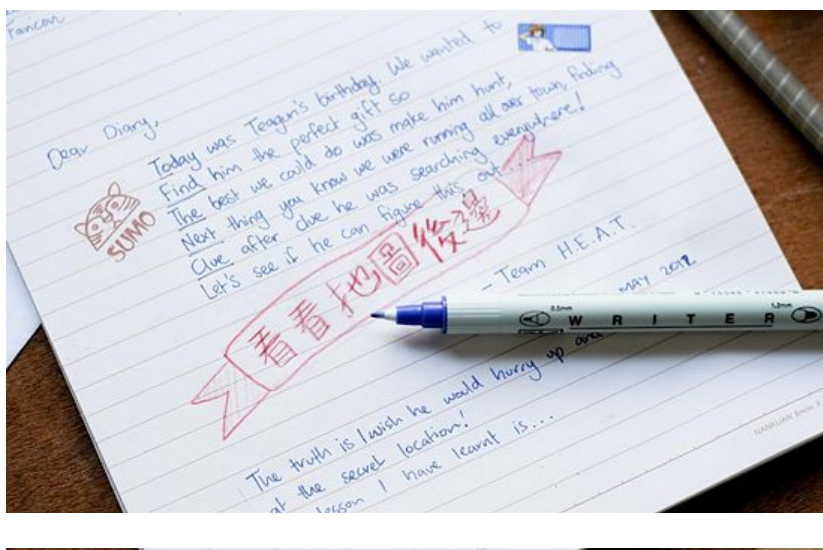 Francon
Dear Diary,
Today was Teagan's birthday. We wanted to
Find him the perfect gift so
The best we could do was make him hunt,
Next thing you know we were running all over town, finding
Clue after clue he was searching everywhere!
Let's see if he can figure this out...
SUMO
看看地圖後邊
- Team H.E.A.T.
MAY 2012
WRITER
The truth is I wish he would hurry up and
at the secret location!
lesson I have learnt is...